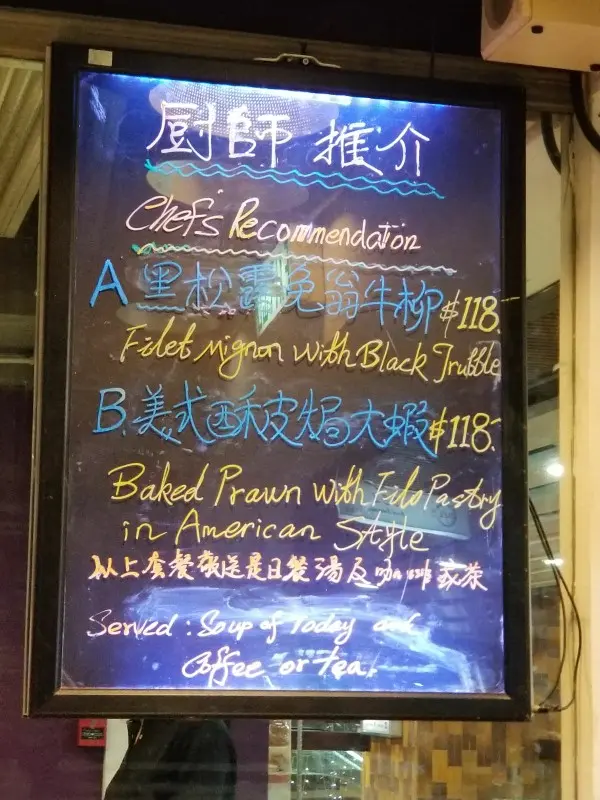 厨師 推介
Chef's Recommendation
A 黑松露免翁牛柳 $118.
Filet Mignon with Black Trubble
B. 美式酥皮焗大蝦 $118.
Baked Prawn with Filo Pastry
in American Style
以上套餐敬送是日餐湯及咖啡或茶
Served : Soup of Today and
Coffee or tea.